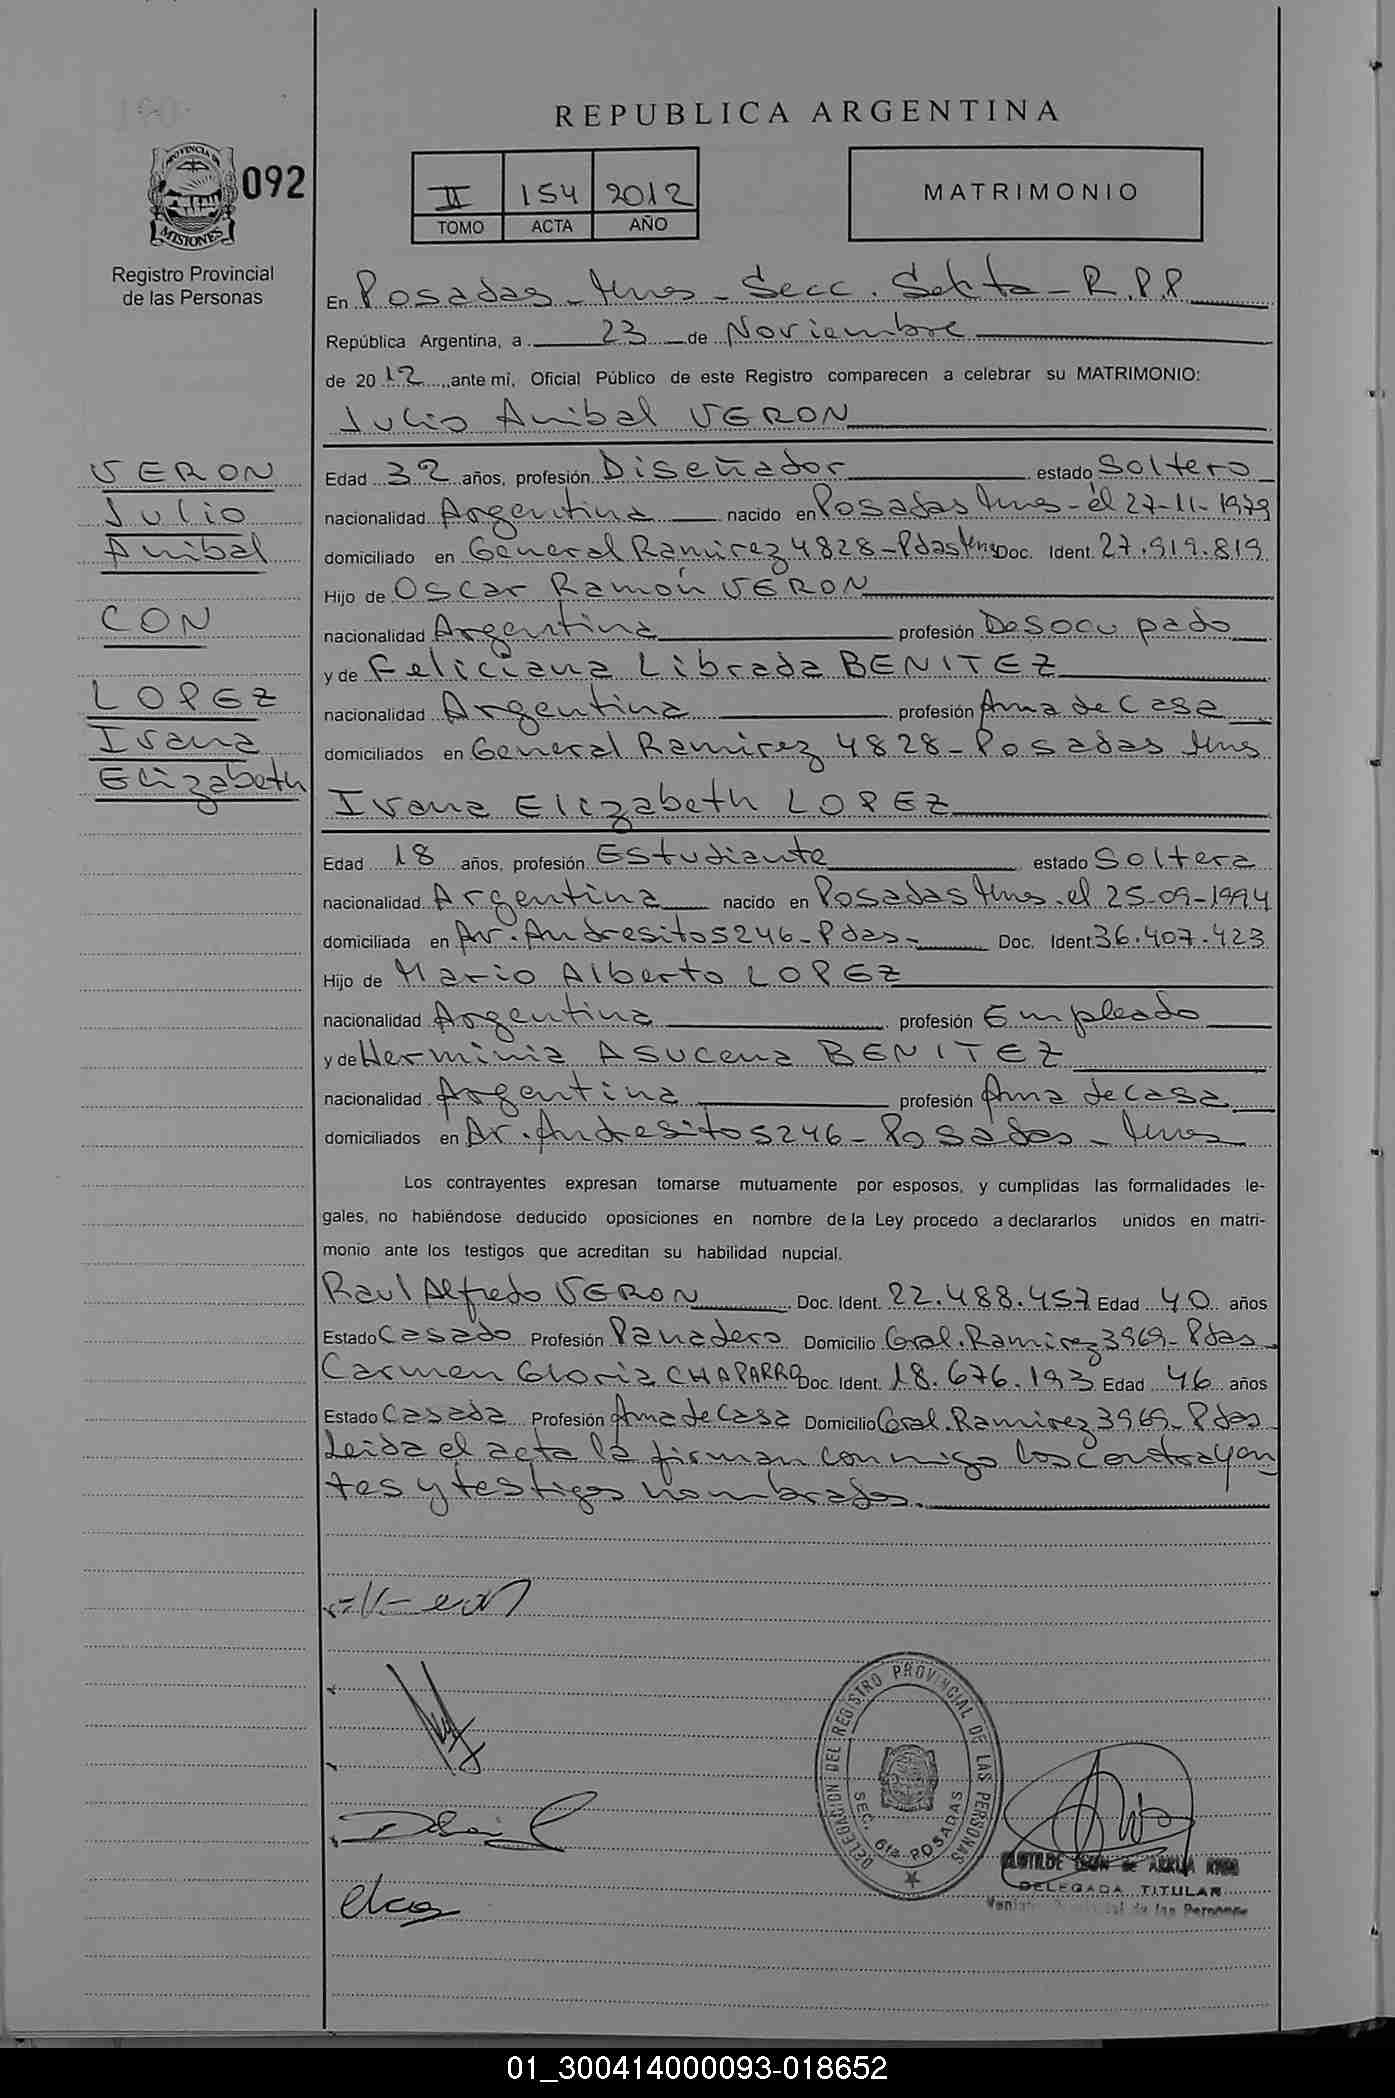 REPUBLICA ARGENTINA
PROVINCIA DE
MISIONES
092
Registro Provincial
de las Personas
II 154 2012
TOMO ACTA AÑO
MATRIMONIO
En Posadas - Mnes - Secc. Sexta - R.P.P
República Argentina, a 23 de Noviembre
de 2012, ante mí, Oficial Público de este Registro comparecen a celebrar su MATRIMONIO:
Julio Anibal VERON
VERON
Julio
Anibal
CON
LOPEZ
Ivana
Elizabeth
Edad 32 años, profesión Diseñador estado Soltero
nacionalidad Argentina nacido en Posadas Mnes - el 27-11-1979
domiciliado en General Ramirez 4828 - Pdas Mnes Doc. Ident. 27.919.819
Hijo de Oscar Ramón VERON
nacionalidad Argentina profesión Desocupado
y de Feliciana Librada BENITEZ
nacionalidad Argentina profesión Ama de Casa
domiciliados en General Ramirez 4828 - Posadas Mnes
Ivana Elizabeth LOPEZ
Edad 18 años, profesión Estudiante estado Soltera
nacionalidad Argentina nacido en Posadas Mnes. el 25-09-1994
domiciliada en Av. Andresito 5246 - Pdas - Doc. Ident. 36.407.423
Hijo de Mario Alberto LOPEZ
nacionalidad Argentina profesión Empleado
y de Herminia Asucena BENITEZ
nacionalidad Argentina profesión Ama de casa
domiciliados en Av. Andresito 5246 - Posadas - Mnes
Los contrayentes expresan tomarse mutuamente por esposos, y cumplidas las formalidades le-
gales, no habiéndose deducido oposiciones en nombre de la Ley procedo a declararlos unidos en matri-
monio ante los testigos que acreditan su habilidad nupcial.
Raul Alfredo VERON Doc. Ident. 22.488.457 Edad 40 años
Estado Casado Profesión Panadero Domicilio Gral. Ramirez 3969 - Pdas
Carmen Gloria CHAPARRO Doc. Ident. 18.676.193 Edad 46 años
Estado Casada Profesión Ama de Casa Domicilio Gral. Ramirez 3969 - Pdas
Leida el acta la firman conmigo los contrayen
tes y testigos nombrados.
DELEGACION DEL REGISTRO PROVINCIAL DE LAS PERSONAS
SEC. 6ta. POSADAS
DELEGADA TITULAR
de las Personas
01_300414000093-018652